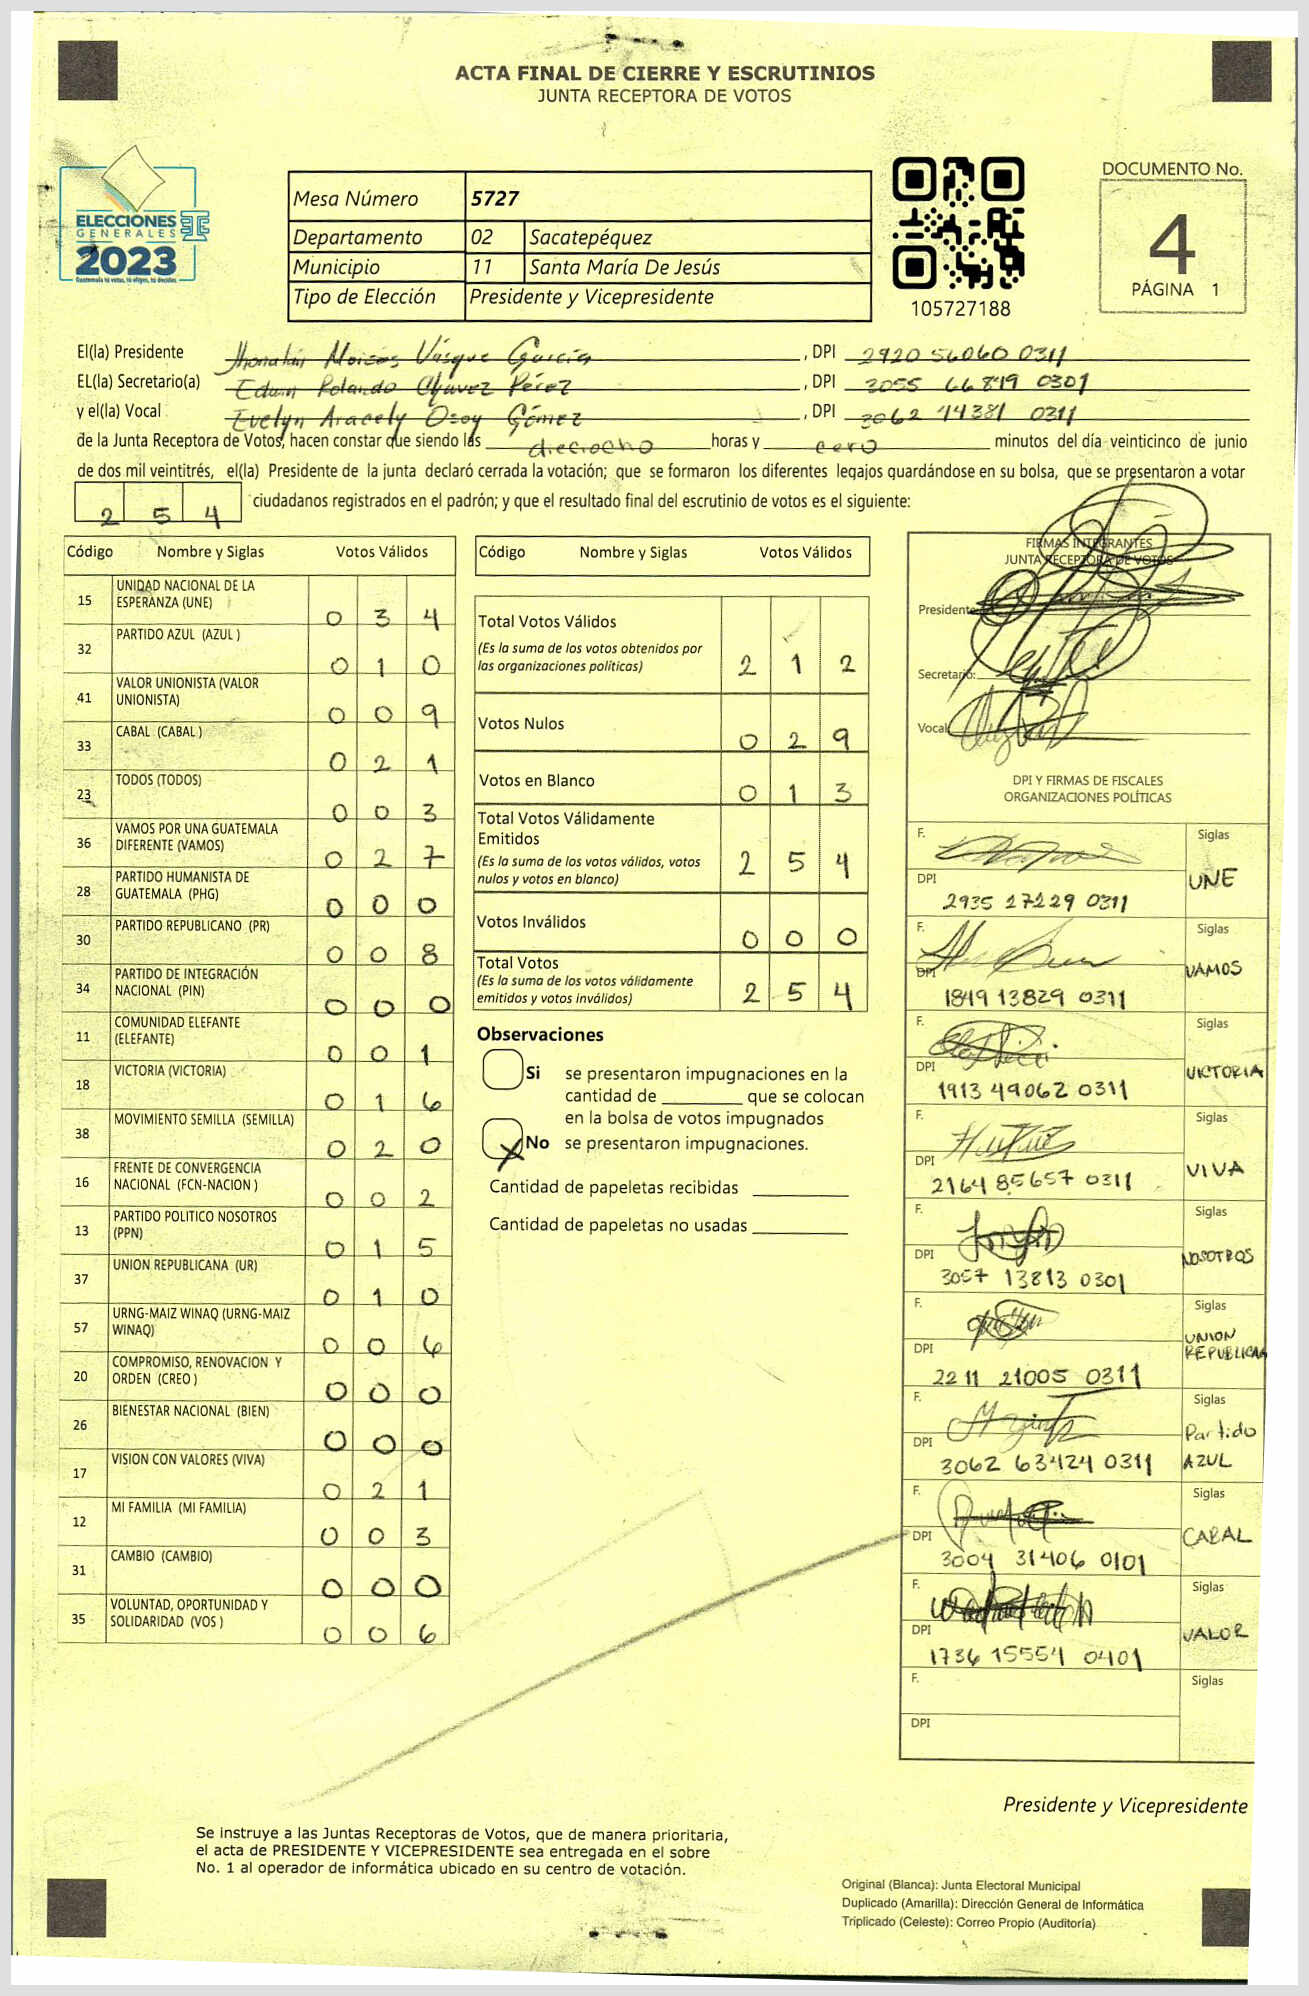 ACTA FINAL DE CIERRE Y ESCRUTINIOS
JUNTA RECEPTORA DE VOTOS
ELECCIONES
GENERALES
2023
Guatemala tú votas, tú eliges, tú decides
Mesa Número 5727
Departamento 02 Sacatepéquez
Municipio 11 Santa María De Jesús
Tipo de Elección Presidente y Vicepresidente
105727188
DOCUMENTO No.
4
PÁGINA 1
El(la) Presidente Jhonatán Moisés Vásque García , DPI 2920 56060 0311
EL(la) Secretario(a) Edwin Rolando Chávez Pérez , DPI 3055 66849 0301
y el(la) Vocal Evelyn Aracely Osoy Gómez , DPI 3062 14381 0311
de la Junta Receptora de Votos, hacen constar que siendo las dieciocho horas y cero minutos del día veinticinco de junio
de dos mil veintitrés, el(la) Presidente de la junta declaró cerrada la votación; que se formaron los diferentes legajos guardándose en su bolsa, que se presentaron a votar
2 5 4 ciudadanos registrados en el padrón; y que el resultado final del escrutinio de votos es el siguiente:
Código Nombre y Siglas Votos Válidos
15 UNIDAD NACIONAL DE LA
ESPERANZA (UNE) 0 3 4
32 PARTIDO AZUL (AZUL ) 0 1 0
41 VALOR UNIONISTA (VALOR
UNIONISTA) 0 0 9
33 CABAL (CABAL ) 0 2 1
23 TODOS (TODOS) 0 0 3
36 VAMOS POR UNA GUATEMALA
DIFERENTE (VAMOS) 0 2 7
28 PARTIDO HUMANISTA DE
GUATEMALA (PHG) 0 0 0
30 PARTIDO REPUBLICANO (PR) 0 0 8
34 PARTIDO DE INTEGRACIÓN
NACIONAL (PIN) 0 0 0
11 COMUNIDAD ELEFANTE
(ELEFANTE) 0 0 1
18 VICTORIA (VICTORIA) 0 1 6
38 MOVIMIENTO SEMILLA (SEMILLA) 0 2 0
16 FRENTE DE CONVERGENCIA
NACIONAL (FCN-NACION ) 0 0 2
13 PARTIDO POLITICO NOSOTROS
(PPN) 0 1 5
37 UNION REPUBLICANA (UR) 0 1 0
57 URNG-MAIZ WINAQ (URNG-MAIZ
WINAQ) 0 0 6
20 COMPROMISO, RENOVACION Y
ORDEN (CREO ) 0 0 0
26 BIENESTAR NACIONAL (BIEN) 0 0 0
17 VISION CON VALORES (VIVA) 0 2 1
12 MI FAMILIA (MI FAMILIA) 0 0 3
31 CAMBIO (CAMBIO) 0 0 0
35 VOLUNTAD, OPORTUNIDAD Y
SOLIDARIDAD (VOS ) 0 0 6
Código Nombre y Siglas Votos Válidos
Total Votos Válidos
(Es la suma de los votos obtenidos por
las organizaciones políticas) 2 1 2
Votos Nulos 0 2 9
Votos en Blanco 0 1 3
Total Votos Válidamente
Emitidos
(Es la suma de los votos válidos, votos
nulos y votos en blanco) 2 5 4
Votos Inválidos 0 0 0
Total Votos
(Es la suma de los votos válidamente
emitidos y votos inválidos) 2 5 4
Observaciones
Si se presentaron impugnaciones en la
cantidad de ________ que se colocan
en la bolsa de votos impugnados
X No se presentaron impugnaciones.
Cantidad de papeletas recibidas
Cantidad de papeletas no usadas
FIRMAS INTEGRANTES
JUNTA RECEPTORA DE VOTOS
Presidente:
Secretario:
Vocal
DPI Y FIRMAS DE FISCALES
ORGANIZACIONES POLÍTICAS
F. Siglas
DPI UNE
2935 27229 0311
F. Siglas
DPI VAMOS
1849 13829 0311
F. Siglas
DPI VICTORIA
1913 49062 0311
F. Siglas
DPI VIVA
2164 85657 0311
F. Siglas
DPI NOSOTROS
3057 13813 0301
F. Siglas
DPI UNION
REPUBLICAN
2211 21005 0311
F. Siglas
DPI Partido
3062 63424 0311 AZUL
F. Siglas
DPI CABAL
3004 31406 0101
F. Siglas
DPI VALOR
1736 15554 0401
F. Siglas
DPI
Presidente y Vicepresidente
Se instruye a las Juntas Receptoras de Votos, que de manera prioritaria,
el acta de PRESIDENTE Y VICEPRESIDENTE sea entregada en el sobre
No. 1 al operador de informática ubicado en su centro de votación.
Original (Blanca): Junta Electoral Municipal
Duplicado (Amarilla): Dirección General de Informática
Triplicado (Celeste): Correo Propio (Auditoría)